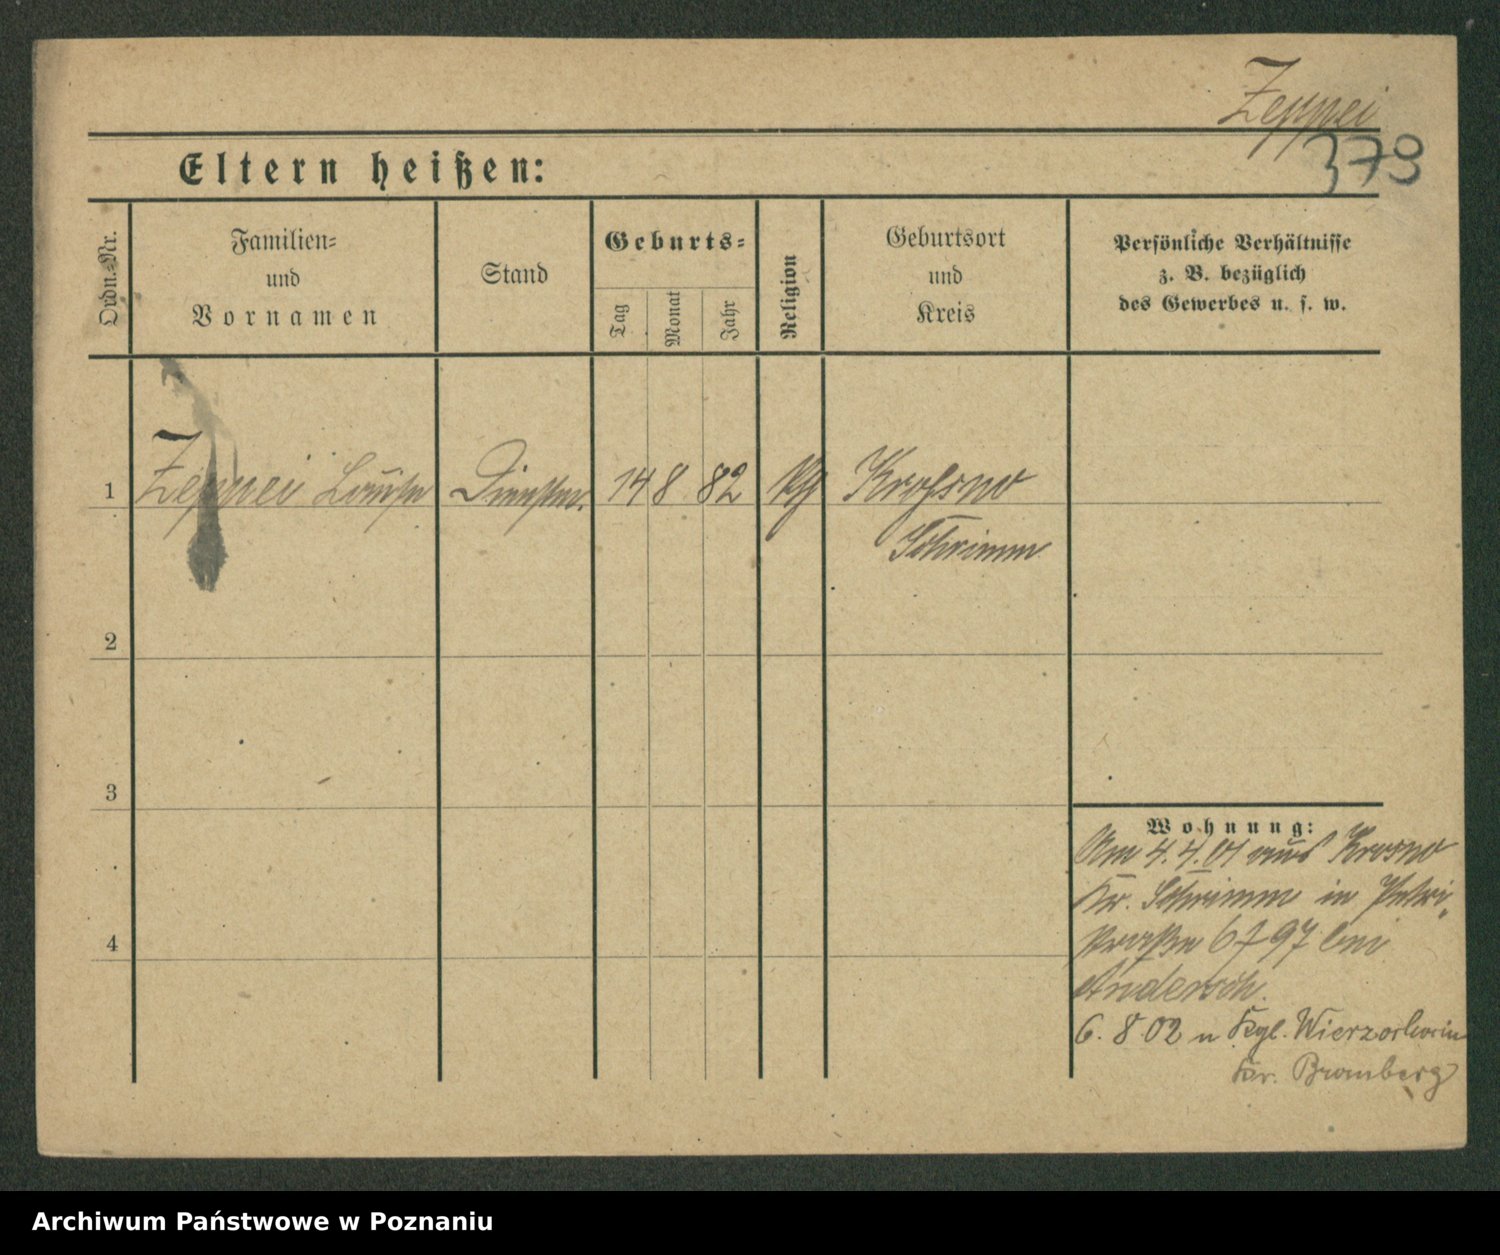 Zeppei
379
Eltern heißen:
Ordn.-Nr.
Familien-
und
Vornamen
Stand
Geburts-
Tag
Monat
Jahr
Religion
Geburtsort
und
Kreis
Persönliche Verhältnisse
z. B. bezüglich
des Gewerbes u. s. w.
1
Zeppei Louise
14 8 82
Krossno
Schrimm
2
3
4
Wohnung:
Am 4. 4. 01 aus Krosno
Kr. Schrimm in Petri
straße bei
Andersch.
6. 8 02 n Kgl.
Kr. Bromberg
Archiwum Państwowe w Poznaniu